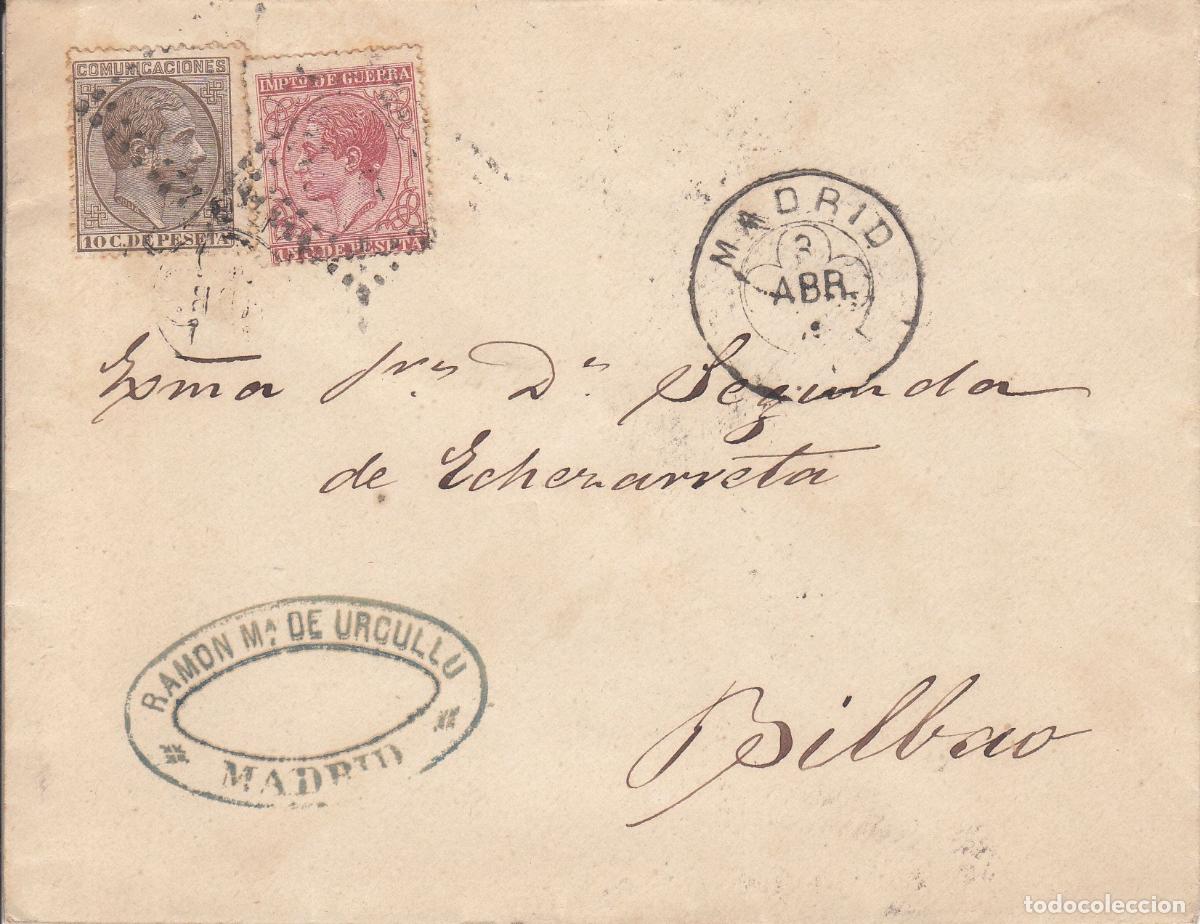 COMUNICACIONES
10 C. DE PESETA
IMPTO DE GUERRA
DE PESETA
MADRID
3
ABR
Exma Sra Da Segunda
de Echezarreta
RAMON Ma. DE URGULLU
MADRID
Bilbao
todocoleccion